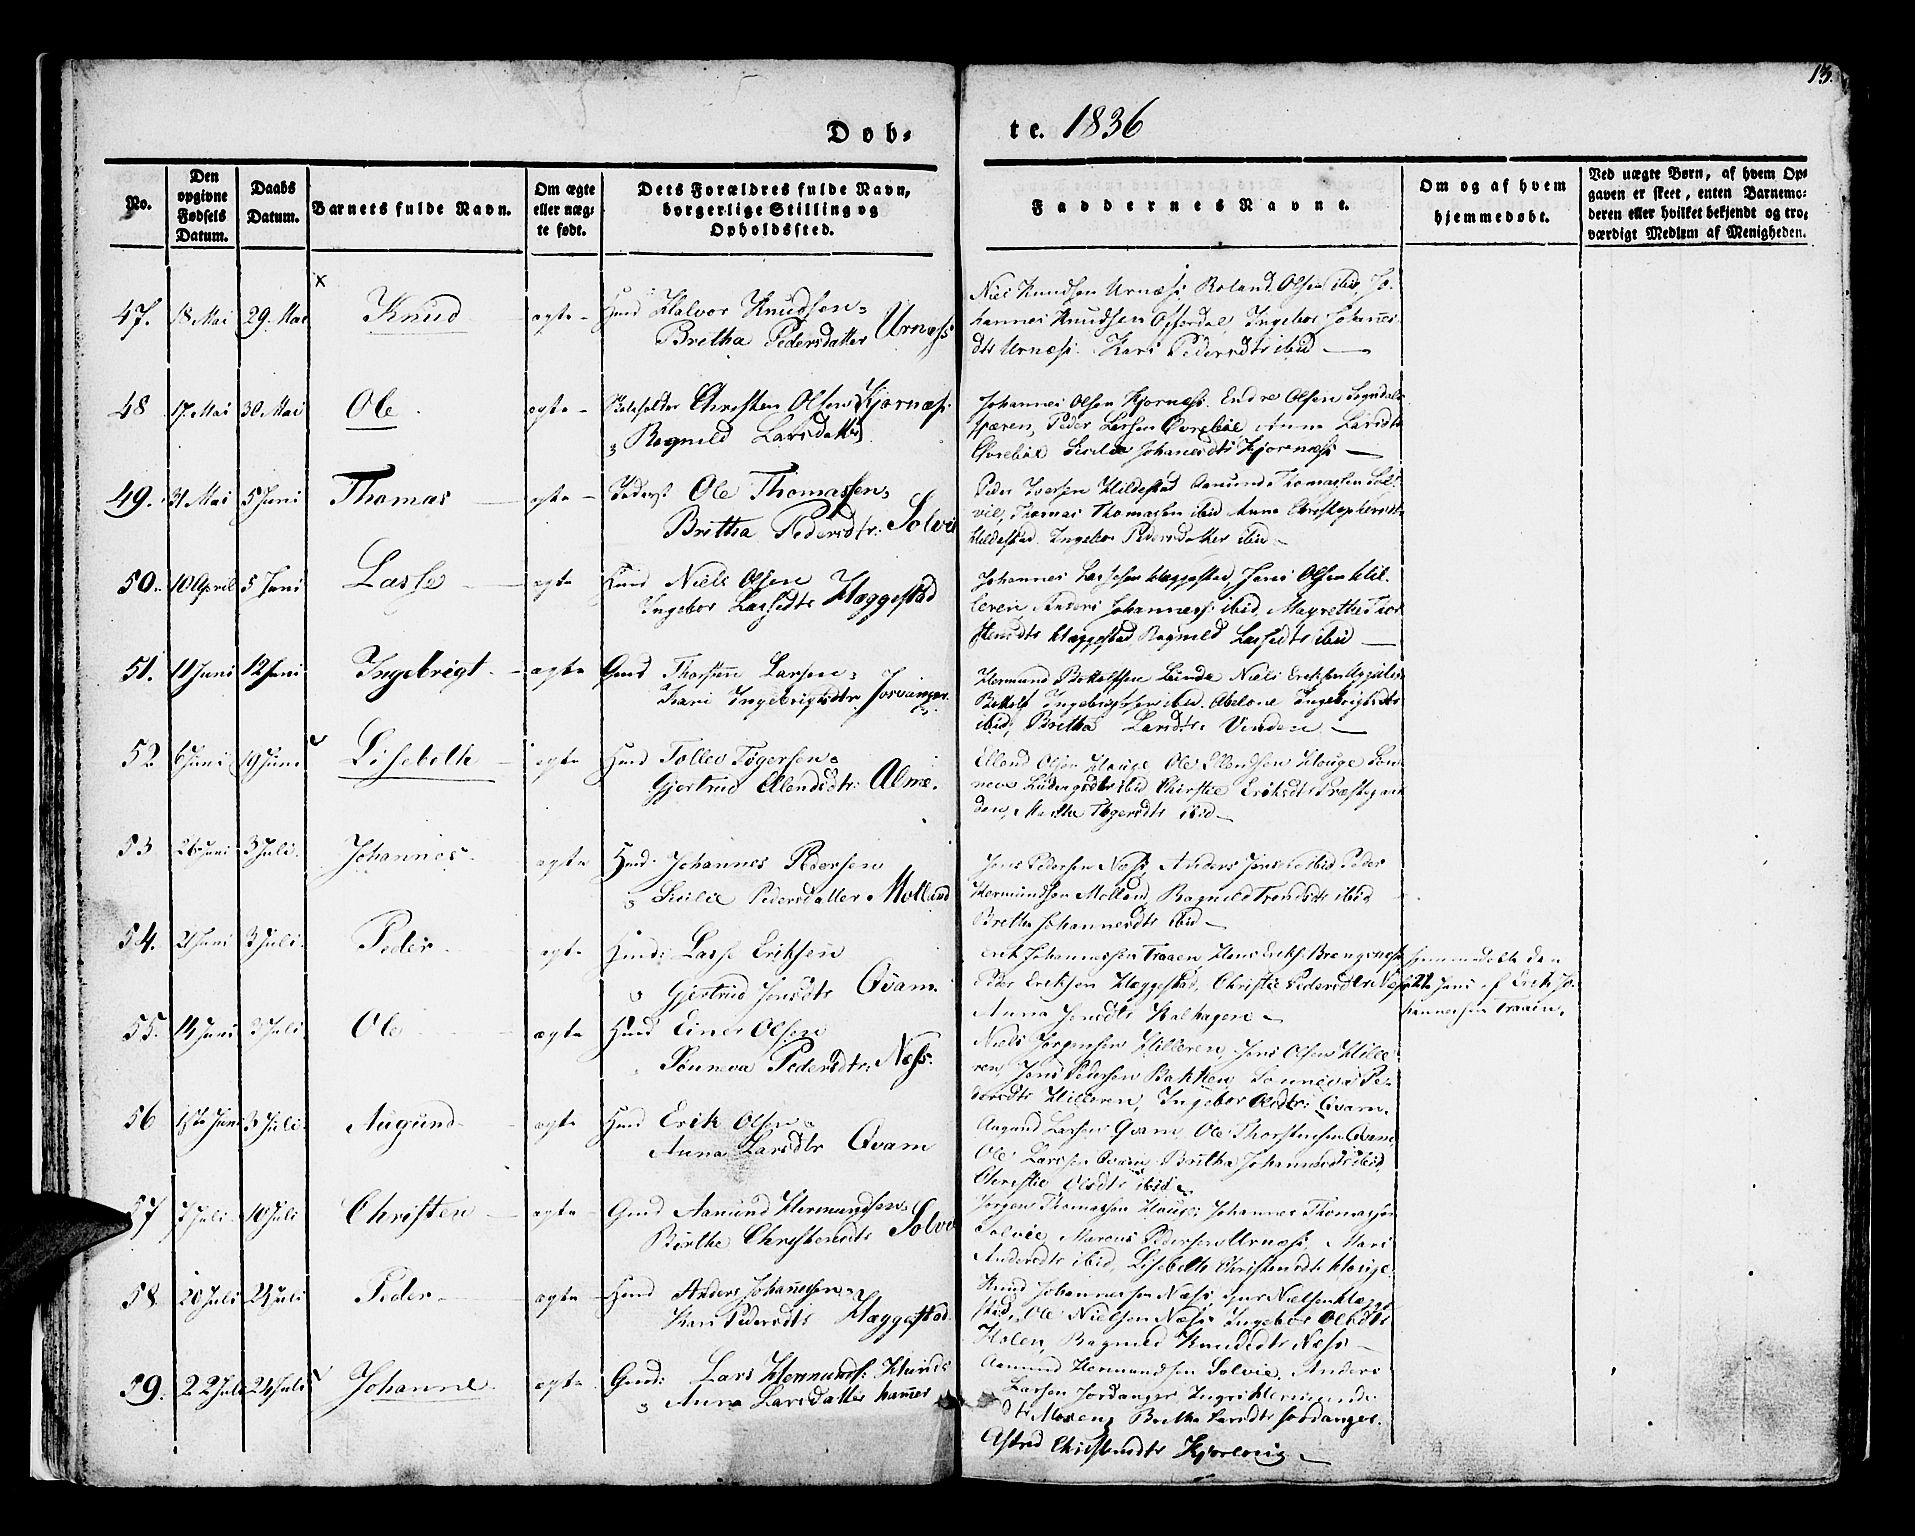 13.
Døb-
te. 1836
No.
Den opgivne Fødsels Datum.
Daabs Datum.
Barnets fulde Navn.
Om ægte eller uæg- te født.
Dets Forældres fulde Navn, borgerlige Stilling og Opholdssted.
Faddernes Navne.
Om og af hvem hjemmedøbt.
Ved uægte Børn, af hvem Op- gaven er skeet, enten Barnemo- deren eller hvilket bekjendt og tro- værdigt Medlem af Menigheden.
47. 18 Mai 29. Mai Knud ægte - Huusmd Halvor Knudsen
Britha Pedersdatter Urness
Niel Knudsen Urness, Roland Olsen ibid, Jo-
hannes Knudsen Offerdal, Ingebor Johannes-
dtr Urness. Kari Pedersdtr ibid
48 17. Mai 30. Mai Ole ægte - Christen Olsen Kjørness
Ragnild Larsdatter
Johannes Olsen Kjørness. Endre Olsen Sogndals-
fjæren, Peder Larsen Øvrebøe Anna Larsdtr
Øvrebøe Sicilia Johanesdtr Kjørness
49. 31 Mai 5 Juni Thomas ægte - Ole Thomassen
Britha Pedersdtr: Solvie
Peder Iversen Hildestad Aamund Thomassen Sol-
vie, Thomas Thomassen ibid Anna Christophersdtr
Hildestad. Ingebor Pedersdatter ibid
50. 10 April 5 Juni Lasse ægte Huusmd Niels Olsen
Ingebor Lassedtr Hæggestad
Johannes Lassesen Hæggestad, Jens Olsen Hil-
leren Anders Johanness: ibid, Magrethe Thor-
stensdtr Hæggestad Ragnild Lassedtr ibid
51. 11 Juni 12 Juni Ingebrigt ægte Gmd Thorsten Larsen
Kari Ingebrigtsdtr Jordanger
Hermund Botolfsen Lunde Niels Eriksen
Botolf Ingebrigtsen ibid. Abelone Ingebrigtsdtr
ibid, Britha Larsdtr Venden
52 6 Juni 19 Juni Lisebeth ægte Hmd Tollev Tøgersen
Gjertrud Ellendsdtr: Alme.
Ellend Olsen Houge Ole Ellendsen Houge
ibid Chirstie Eriksdtr Præstegaar-
den, Marthe Tøgersdtr ibid
53 26 Juni 3 Juli. Johannes ægte Hmd: Johannes Pedersen
Sicilie Pedersdatter Molland
Jens Pedersen Næss, Anders Jensen ibid Peder
Hermundsen Molland, Ragnild Trondsdtr ibid
Britha Johannesdtr ibid
54. 21 Juni 3 Juli. Peder ægte Hmd: Lasse Eriksen
Gjertrud Jensdtr Qvam.
Erik Johannessen Traaen Hans Eriks:
Peder Eriksen Hæggestad, Christie Pedersdtr Næss
Anna Jensdtr Kalhagen
hjemmedøbt den
22 Juni af Erik Jo-
hannessen Traaen.
55. 14 Juni 3 Juli Ole ægte Hmd Einer Olsen
Sunneva Pedersdtr: Næss:
Niels Jørgensen Hilleren, Jens Olsen Hille-
ren, Jens Pedersen Bakken Sunneva Pe-
dersdtr Hilleren, Ingebor Olsdtr: Qvam
56 Juni 3 Juli Augund ægte Hmd Erik Olsen
Anna Larsdtr Qvam
Augund Larsen Qvam, Ole Thorstensen Qvam
Ole Larsen Qvam Britha Johannesdtr ibid
Christie Olsdtr ibid
57 7 Juli 10 Juli Christen ægte Gmd Aamund Hermundsen
Birthe Christensdtr Solvie
Jørgen Thomassen Houge, Johannes Thomassen
Solvie, Marcus Pedersen Urness, Mari
Andersdtr ibid, Lisebeth Christensdtr Houge
58 20 Juli 24 Juli Peder ægte Hmd Anders Johannesen
Kari Pedersdtr Hæggestad
Knud Johannessen Næss, Nielsen Hægge-
stad, Ole Nielsen Næss Ingebor Olsdtr
Holen, Ragnild Knudsdtr Næss
59. 22 Juli 24 Juli Johanne ægte Gmd: Lars Hermunds: Hunds-
Anna Larsdatter hamer
Aamund Hermundsen Solvie, Anders
Larsen Jordanger Ingri Hermunds-
dtr Moren, Britha Larsdtr Jordanger.
Astrid Christensdtr Kjørlevig